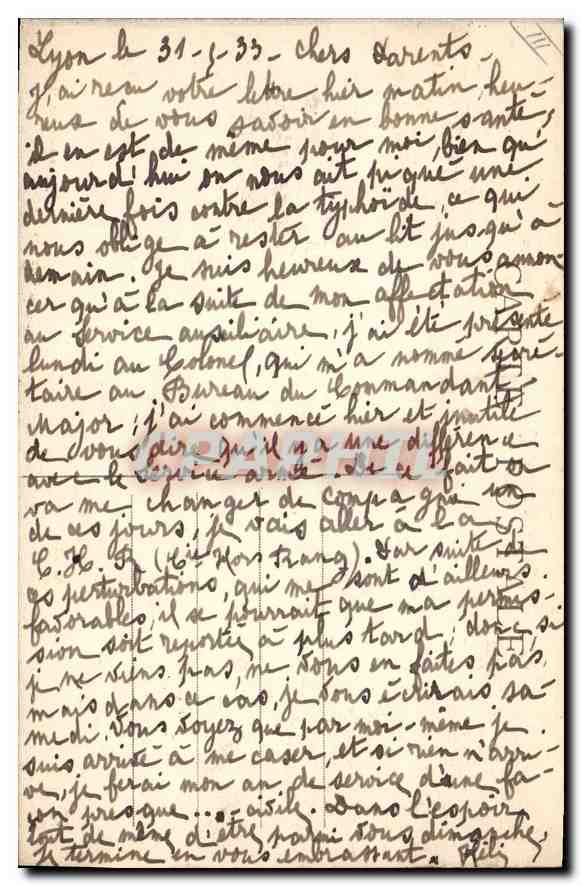 III
Lyon le 31-5-33 - chers Parents -
J'ai reçu votre lettre hier matin, heu-
reux de vous savoir en bonne santé,
il en est de même pour moi, bien qu'
aujourd'hui on nous ait piqué une
dernière fois contre la typhoïde, ce qui
nous oblige à rester au lit jusqu'à
demain. Je suis heureux de vous annon-
cer qu'à la suite de mon affectation
au service auxiliaire, j'ai été présenté
lundi au Colonel, qui m'a nommé secré-
taire au Bureau du Commandant
Major; j'ai commencé hier et inutile
de vous dire qu'il y a une différence
avec le service armé. De ce fait on
va me changer de compagnie un
de ces jours, je vais aller à la
C.H.R (Cie Hors Rang). Par suite
ces perturbations, qui me sont d'ailleurs
favorables, il se pourrait que ma permis-
sion soit reportée à plus tard, donc, si
je ne viens pas, ne vous en faites pas,
mais dans ce cas, je vous écrirais sa-
medi. Vous voyez que par moi-même je
suis arrivé à me caser, et si rien n'arri-
ve, je ferai mon an de service d'une fa-
çon presque .... civile. Dans l'espoir
tout de même d'être parmi vous dimanche,
Je termine en vous embrassant.
CARTE POSTALE